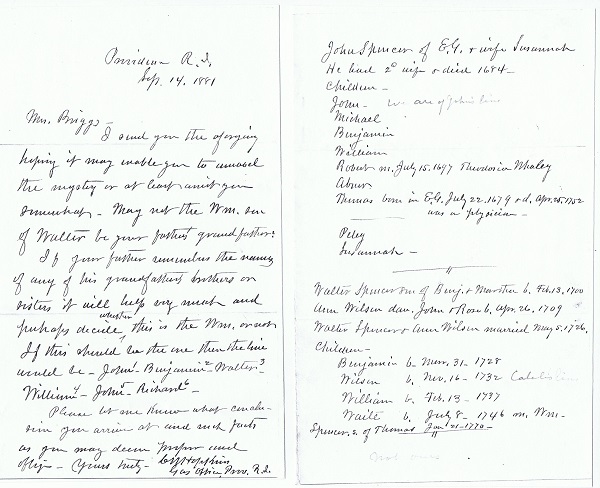 Providence R.I.
Sep. 14. 1881
Mrs. Briggs -
I send you the
hoping it may enable you to unravel
the mystery or at least assist you
somewhat - May not the Wm. son
of Walter be your father's grandfather?
If your father remembers the names
of any of his grandfather's brothers or
sisters it will help very much and
perhaps decide whether this is the Wm. or not
If this should be the one then the line
would be - John1 - Benjamin2 - Walter3
William4 - John5 - Richard6 -
Please let me know what conclu-
sion you arrive at and such facts
as you may deem proper and
oblige - Yours truly -
Gas Office, Prov. R.I.
John Spencer of E.G. & wife Susannah
He had 2d wife & died 1684 -
Children -
John - we are of John line
Michael
Benjamin
William
Robert m. July 15. 1697 Theodosia Whaley
Abner
Thomas born in E.G. July 22. 1679 & d. Apr. 25. 1752
was a physician -
Peleg
Susannah -
"
Walter Spencer son of Benj. & Martha b. Feb. 13. 1700
Ann Wilson dau. John & Rose b. Apr. 26. 1709
Walter Spencer & Ann Wilson married May 5. 1726.
Children -
Benjamin b. Mar. 31 - 1728
Wilson b. Nov. 16 - 1732
William b. Feb. 13 - 1737
Waite b. July 8 - 1746 m. Wm.
Spencer, s. of Thomas Jan 21 - 1770 -
"